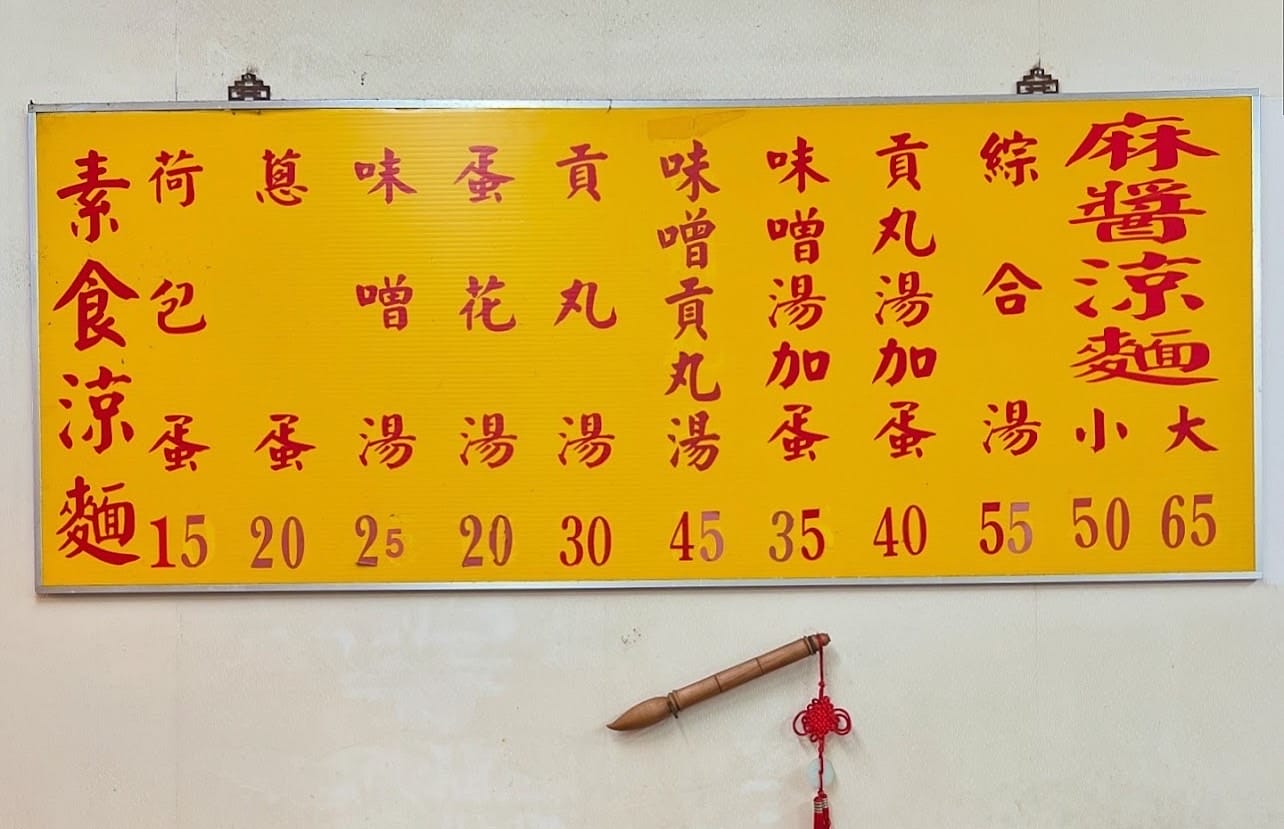 麻醬涼麵 小 50 大 65
綜合湯 55
貢丸湯加蛋 40
味噌湯加蛋 35
味噌貢丸湯 45
貢丸湯 30
蛋花湯 20
味噌湯 25
蔥蛋 20
荷包蛋 15
素食涼麵